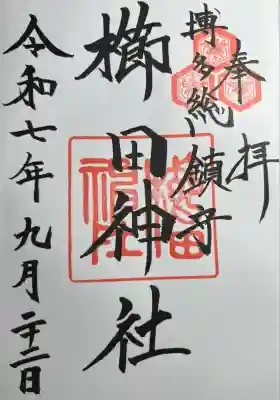 奉拝
博多総鎮守
櫛田神社
令和七年九月二十二日